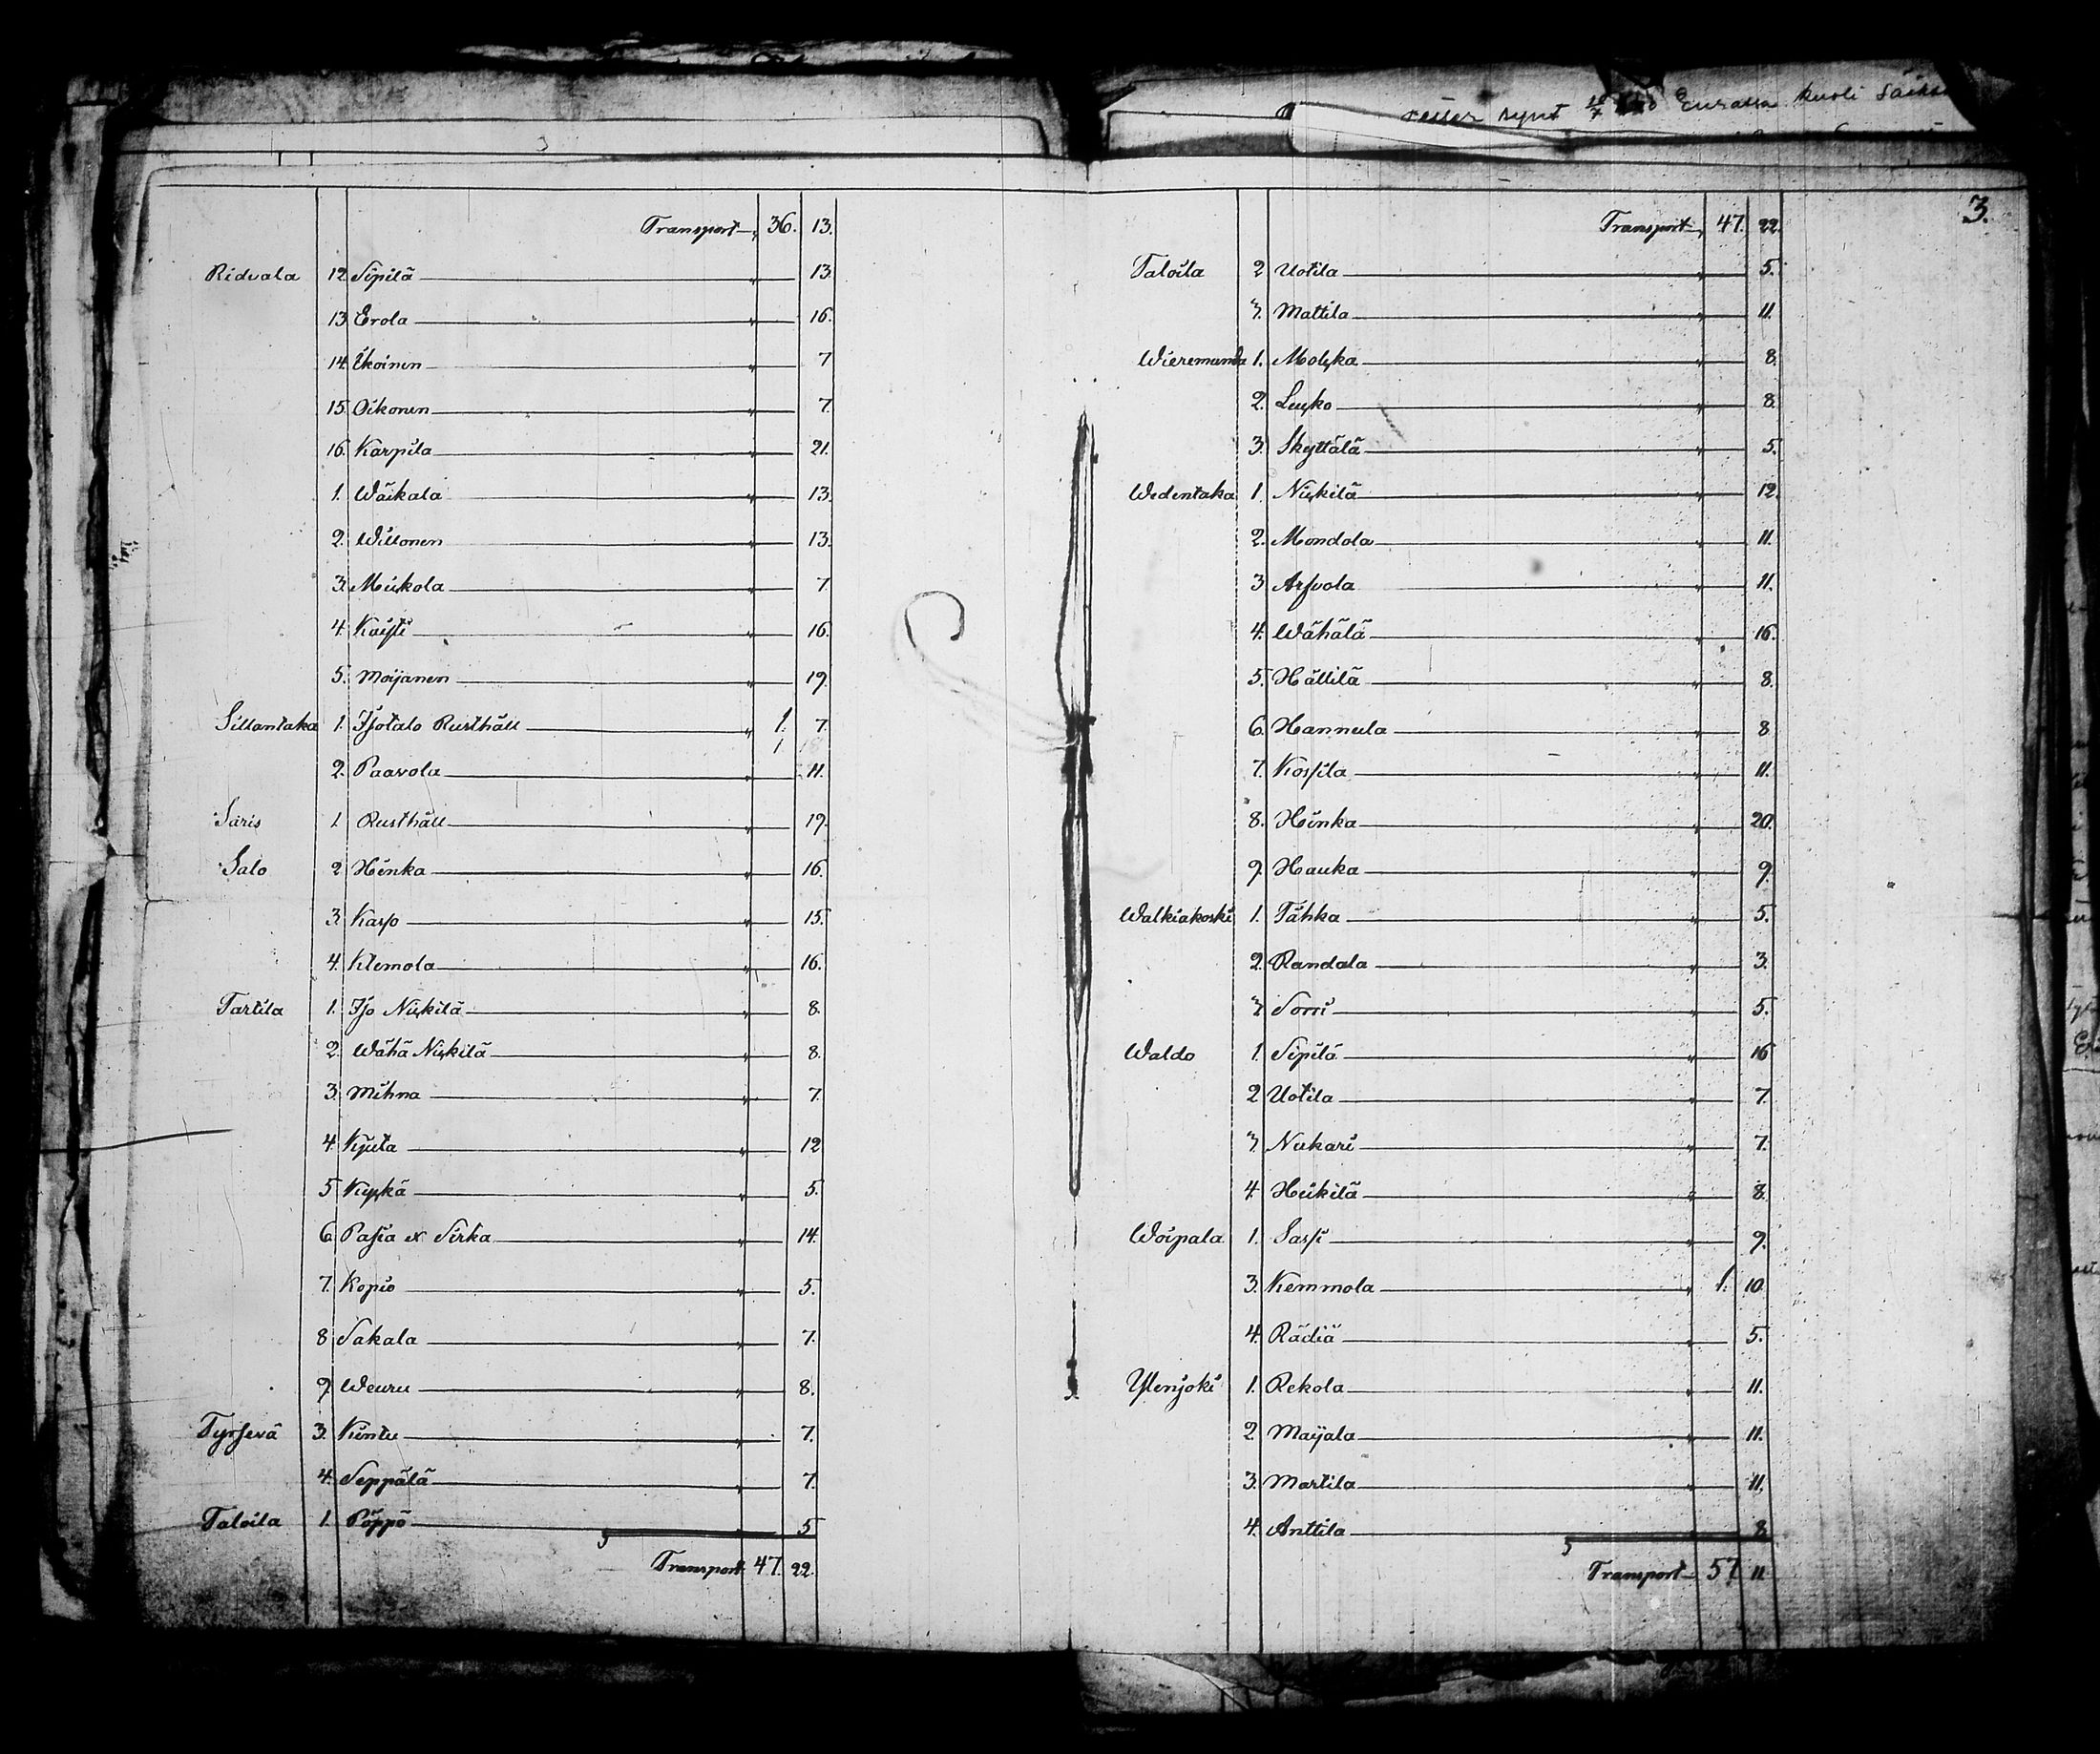 3
Transport 36. 13.
Ridvala 12 Sipilä " 13.
13 Erola " 16.
14. Ukoinen " 7
15. Oikonen " 7.
16. Karpila " 21.
1. Waikala " 13.
2. Willonen " 13.
3. Miekkola " 7.
4. Kaisti " 16.
5. Moijanen " 19.
Sillantaka 1. Isotalo Rusthåll " 1. 7.
2. Paavola " 11.
Saris 1. Rusthåll " 19.
Salo 2 Hinka " 16.
3. Kaso " 15.
4. Klemola " 16.
Tartila 1. Iso Nickilä " 8.
2. Wähä Nickilä " 8.
3. Mihna " 7.
4. Kjuta " 12
5 Kuckä " 5.
6. Pasia & Sirka " 14.
7. Kopio " 5.
8 Sakala " 7.
9. Weuru " 8.
Tyrsevä 3. Kintu " 7.
4. Seppälä " 7.
Taloila 1. Pöppö " 5
Transport 47. 22.
synt Eurassa kuoli
3.
Transport " 47. 22.
Taloila 2 Uotila " 5.
3. Mattila " 11.
Wieremanda 1. Molcka " 8.
2. Lucko " 8.
3. Skyttälä " 5.
Wedentaka 1. Nickilä " 12.
2. Mondola " 11.
3 Arfvola " 11.
4. Wähälä " 16.
5. Hällilä " 8.
6. Hannula " 8
7. Kossila " 11.
8. Hinka " 20.
9. Hauka " 9.
Walkiakoski 1. Tähkä " 5.
2. Randala " 3.
3 Sorri " 5.
Waldo 1. Sipilä " 16
2 Uotila " 7.
3. Nukari " 7.
4. Heikilä " 8.
Woipala 1. Sassi " 9.
3. Kemmola " 1. 10
4. Rädiä " 5.
Ylenjoki 1. Rekola " 11.
2. Maijala " 11.
3. Martila " 11.
4. Anttila " 8
Transport 57 11